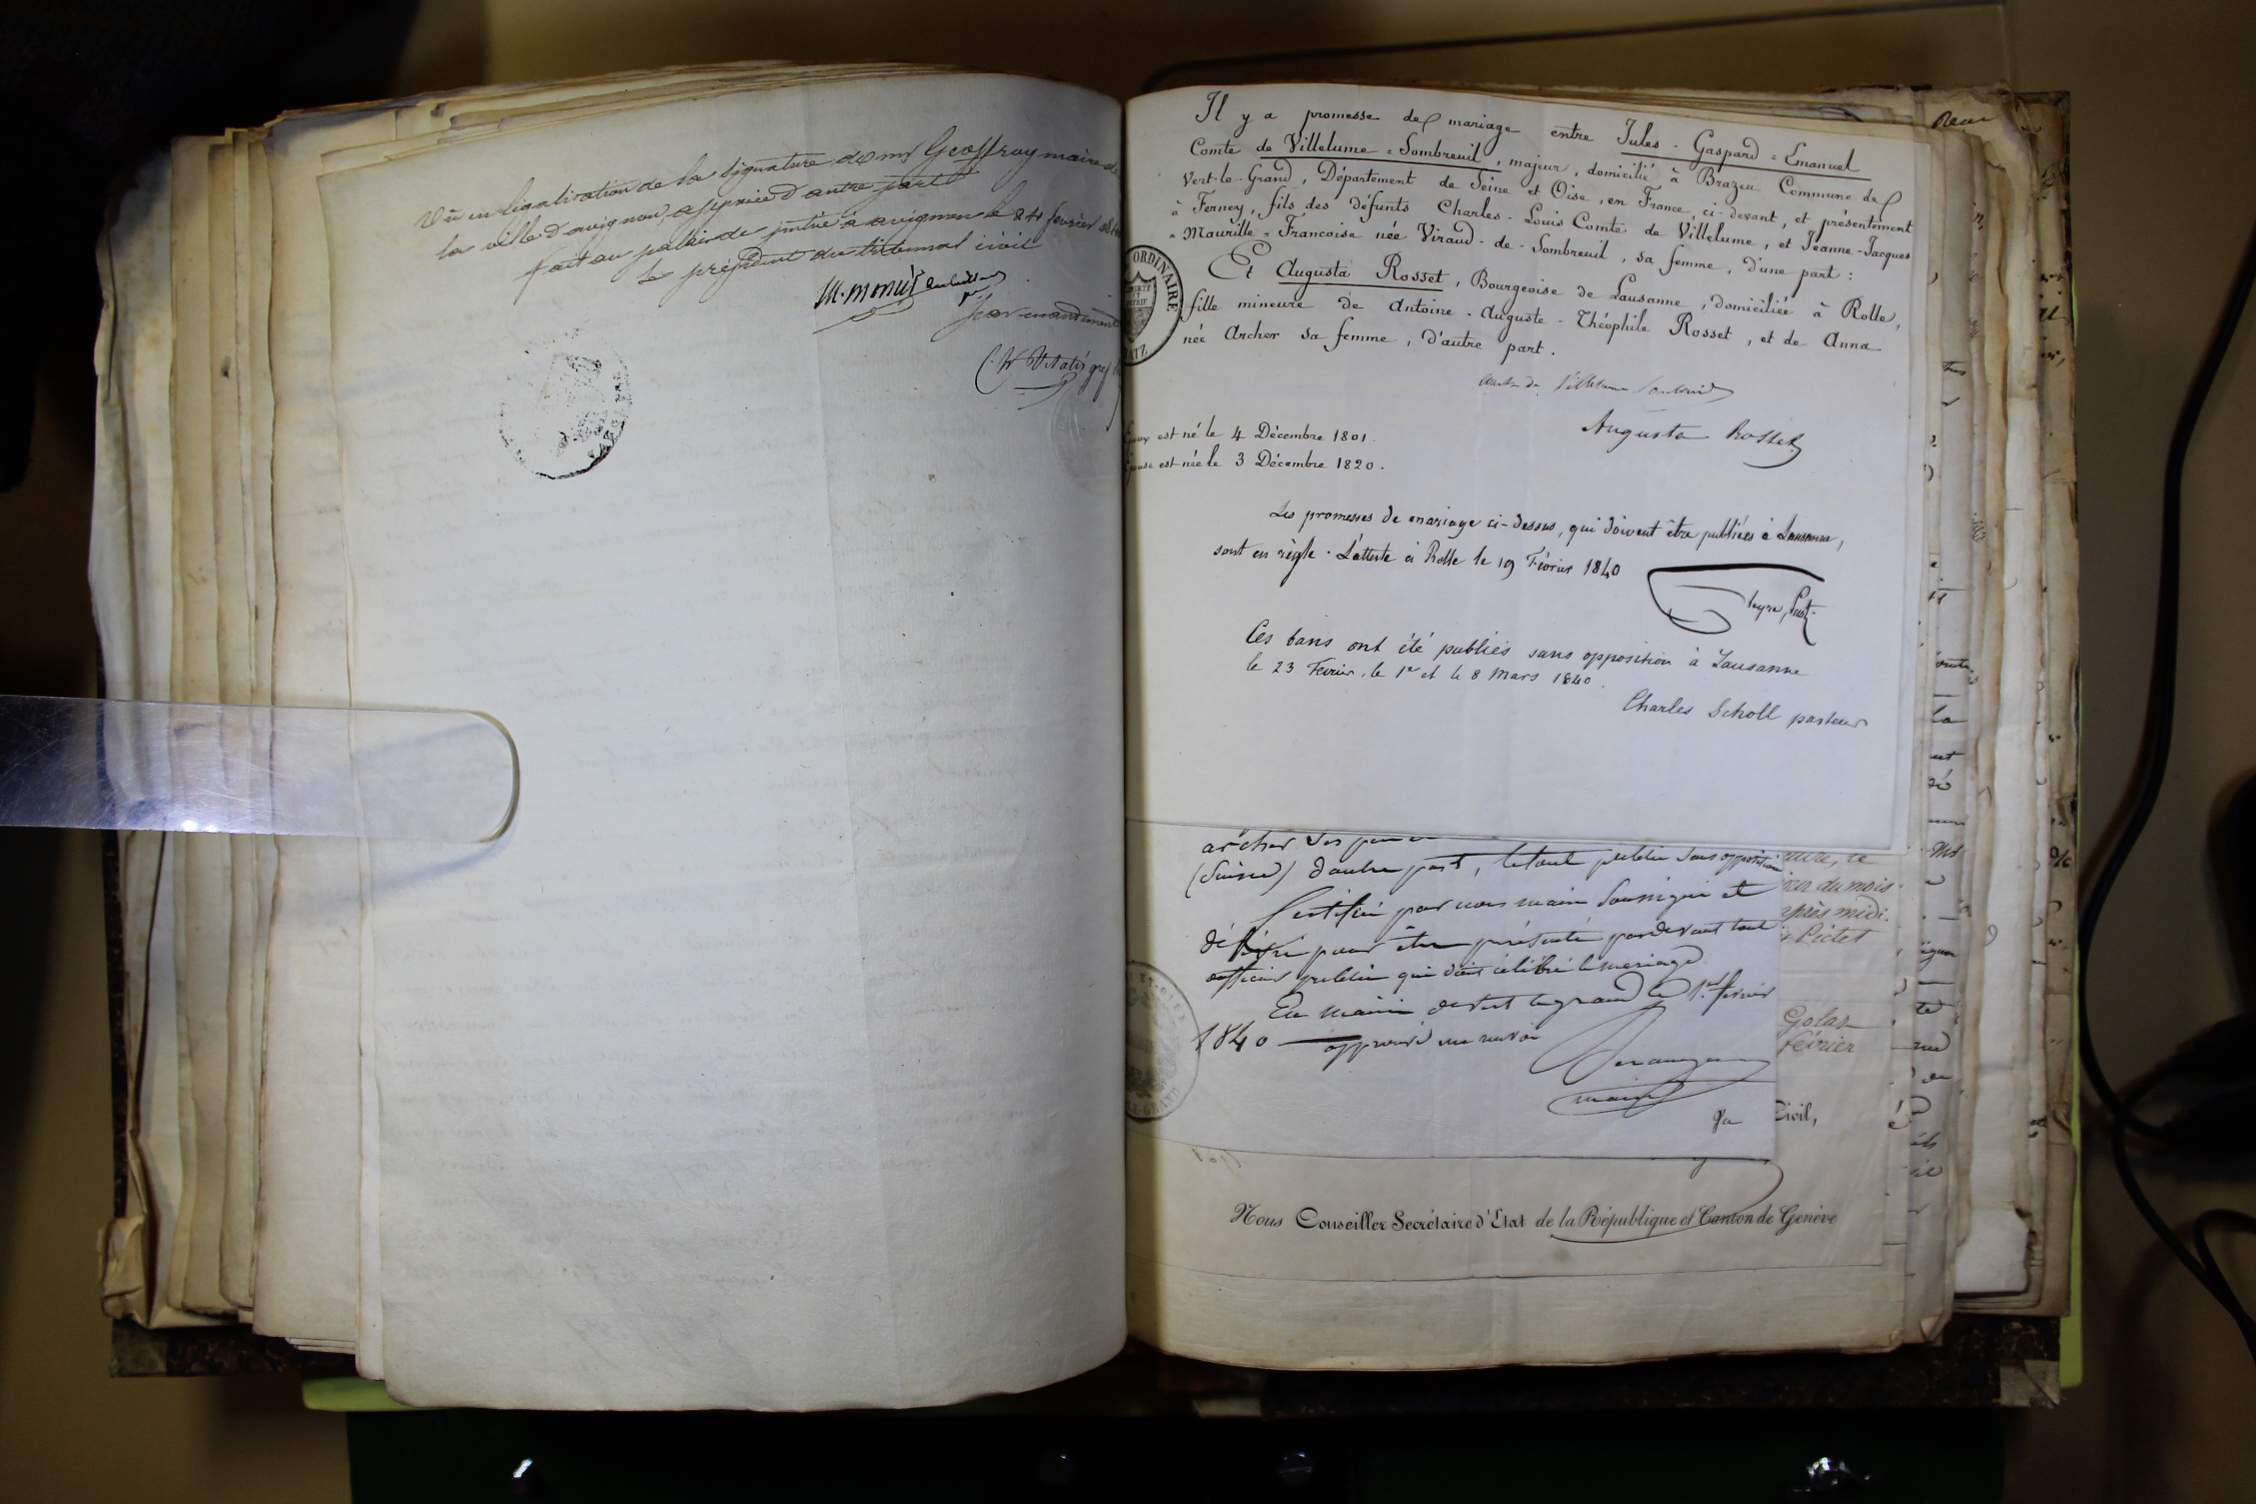 Vu en légalisation de la signature de mr Geoffroy maire de
la ville d'avignon, apposée d'autre part
fait au palais de justice à avignon le 24 février 1840
Le président du tribunal civil
M. monier
Par mandement
Il y a promesse de mariage entre Jules - Gaspard = Emanuel
Comte de Villelume = Sombreuil, majeur, domicilié à Brazeu Commune de
Vert-le-Grand, Département de Seine et Oise, en France, ci-devant, et présentement
à Ferney, fils des défunts Charles-Louis Comte de Villelume, et Jeanne-Jacques
= Maurille = Francoise née Viraud-de-Sombreuil, sa femme, d'une part :
Et Augusta Rosset, Bourgeoise de Lausanne, domiciliée à Rolle,
fille mineure de Antoine-Auguste-Théophile Rosset, et de Anna
née Archer sa femme, d'autre part.
ORDINAIRE
BATZ.
de Villelume Sombreuil
Augusta Rosset
est né le 4 Décembre 1801.
est née le 3 Décembre 1820.
Les promesses de mariage ci-dessus, qui doivent être publiées à Lausanne,
sont en règle. L'atteste à Rolle le 19 Février 1840
Ces bans ont été publiés sans opposition à Lausanne
le 23 Février, le 1er et le 8 Mars 1840.
Charles Scholl pasteur
archer
(Suisse) d'autre part, le tout publié sans opposition
Certifié par nous maire soussigné et
délivré pour être présenté pardevant tout
officier public qui doit célébrer le mariage
En mairie de vert le grand le 1er février
1840 approuvé un renvoi
maire
du mois
après midi.
Pictet
Golas
février
Civil,
Nous Conseiller Secrétaire d'Etat de la République et Canton de Genève